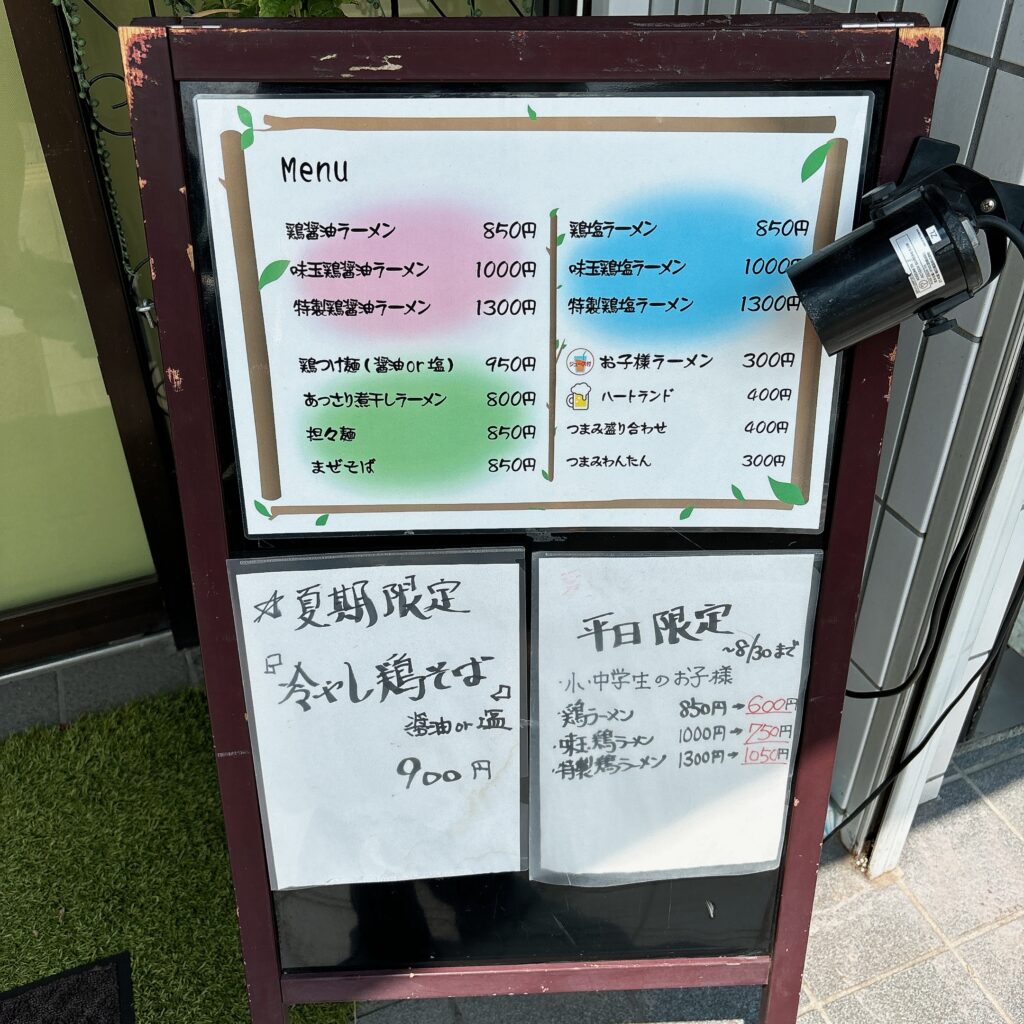 Menu
鶏醤油ラーメン 850円
味玉鶏醤油ラーメン 1000円
特製鶏醤油ラーメン 1300円
鶏つけ麺(醤油or塩) 950円
あっさり煮干しラーメン 800円
担々麺 850円
まぜそば 850円
鶏塩ラーメン 850円
味玉鶏塩ラーメン 1000円
特製鶏塩ラーメン 1300円
お子様ラーメン 300円
ハートランド 400円
つまみ盛り合わせ 400円
つまみわんたん 300円
☆夏期限定
冷やし鶏そば
醤油or塩
900円
平日限定
~8/30まで
・小・中学生のお子様
・鶏ラーメン 850円→600円
・味玉鶏ラーメン 1000円→750円
・特製鶏ラーメン 1300円→1050円